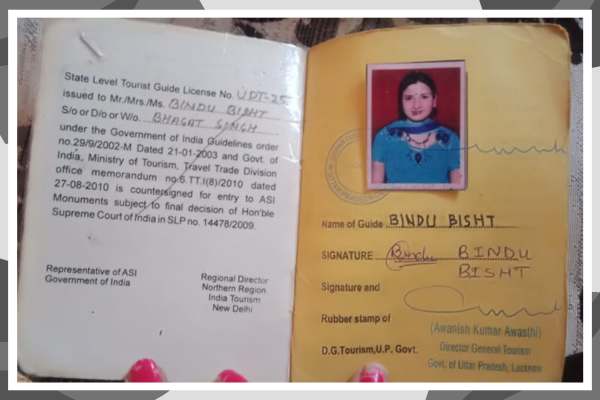 State Level Tourist Guide License No. UDT-25
issued to Mr./Mrs./Ms. BINDU BISHT
S/o or D/o or W/o. BHAGAT SINGH
under the Government of India Guidelines order
no.29/9/2002-M Dated 21-01-2003 and Govt. of
India, Ministry of Tourism, Travel Trade Division
office memorandum no.6.TT.I(8)/2010 dated
27-08-2010 is countersigned for entry to ASI
Monuments subject to final decision of Hon'ble
Supreme Court of India in SLP no. 14478/2009.
Representative of ASI
Government of India
Regional Director
Northern Region
India Tourism
New Delhi
Name of Guide BINDU BISHT
SIGNATURE Bindu BINDU
BISHT
Signature and
Rubber stamp of
(Awanish Kumar Awasthi)
D.G.Tourism,U.P. Govt.
Director General Tourism
Govt. of Uttar Pradesh,